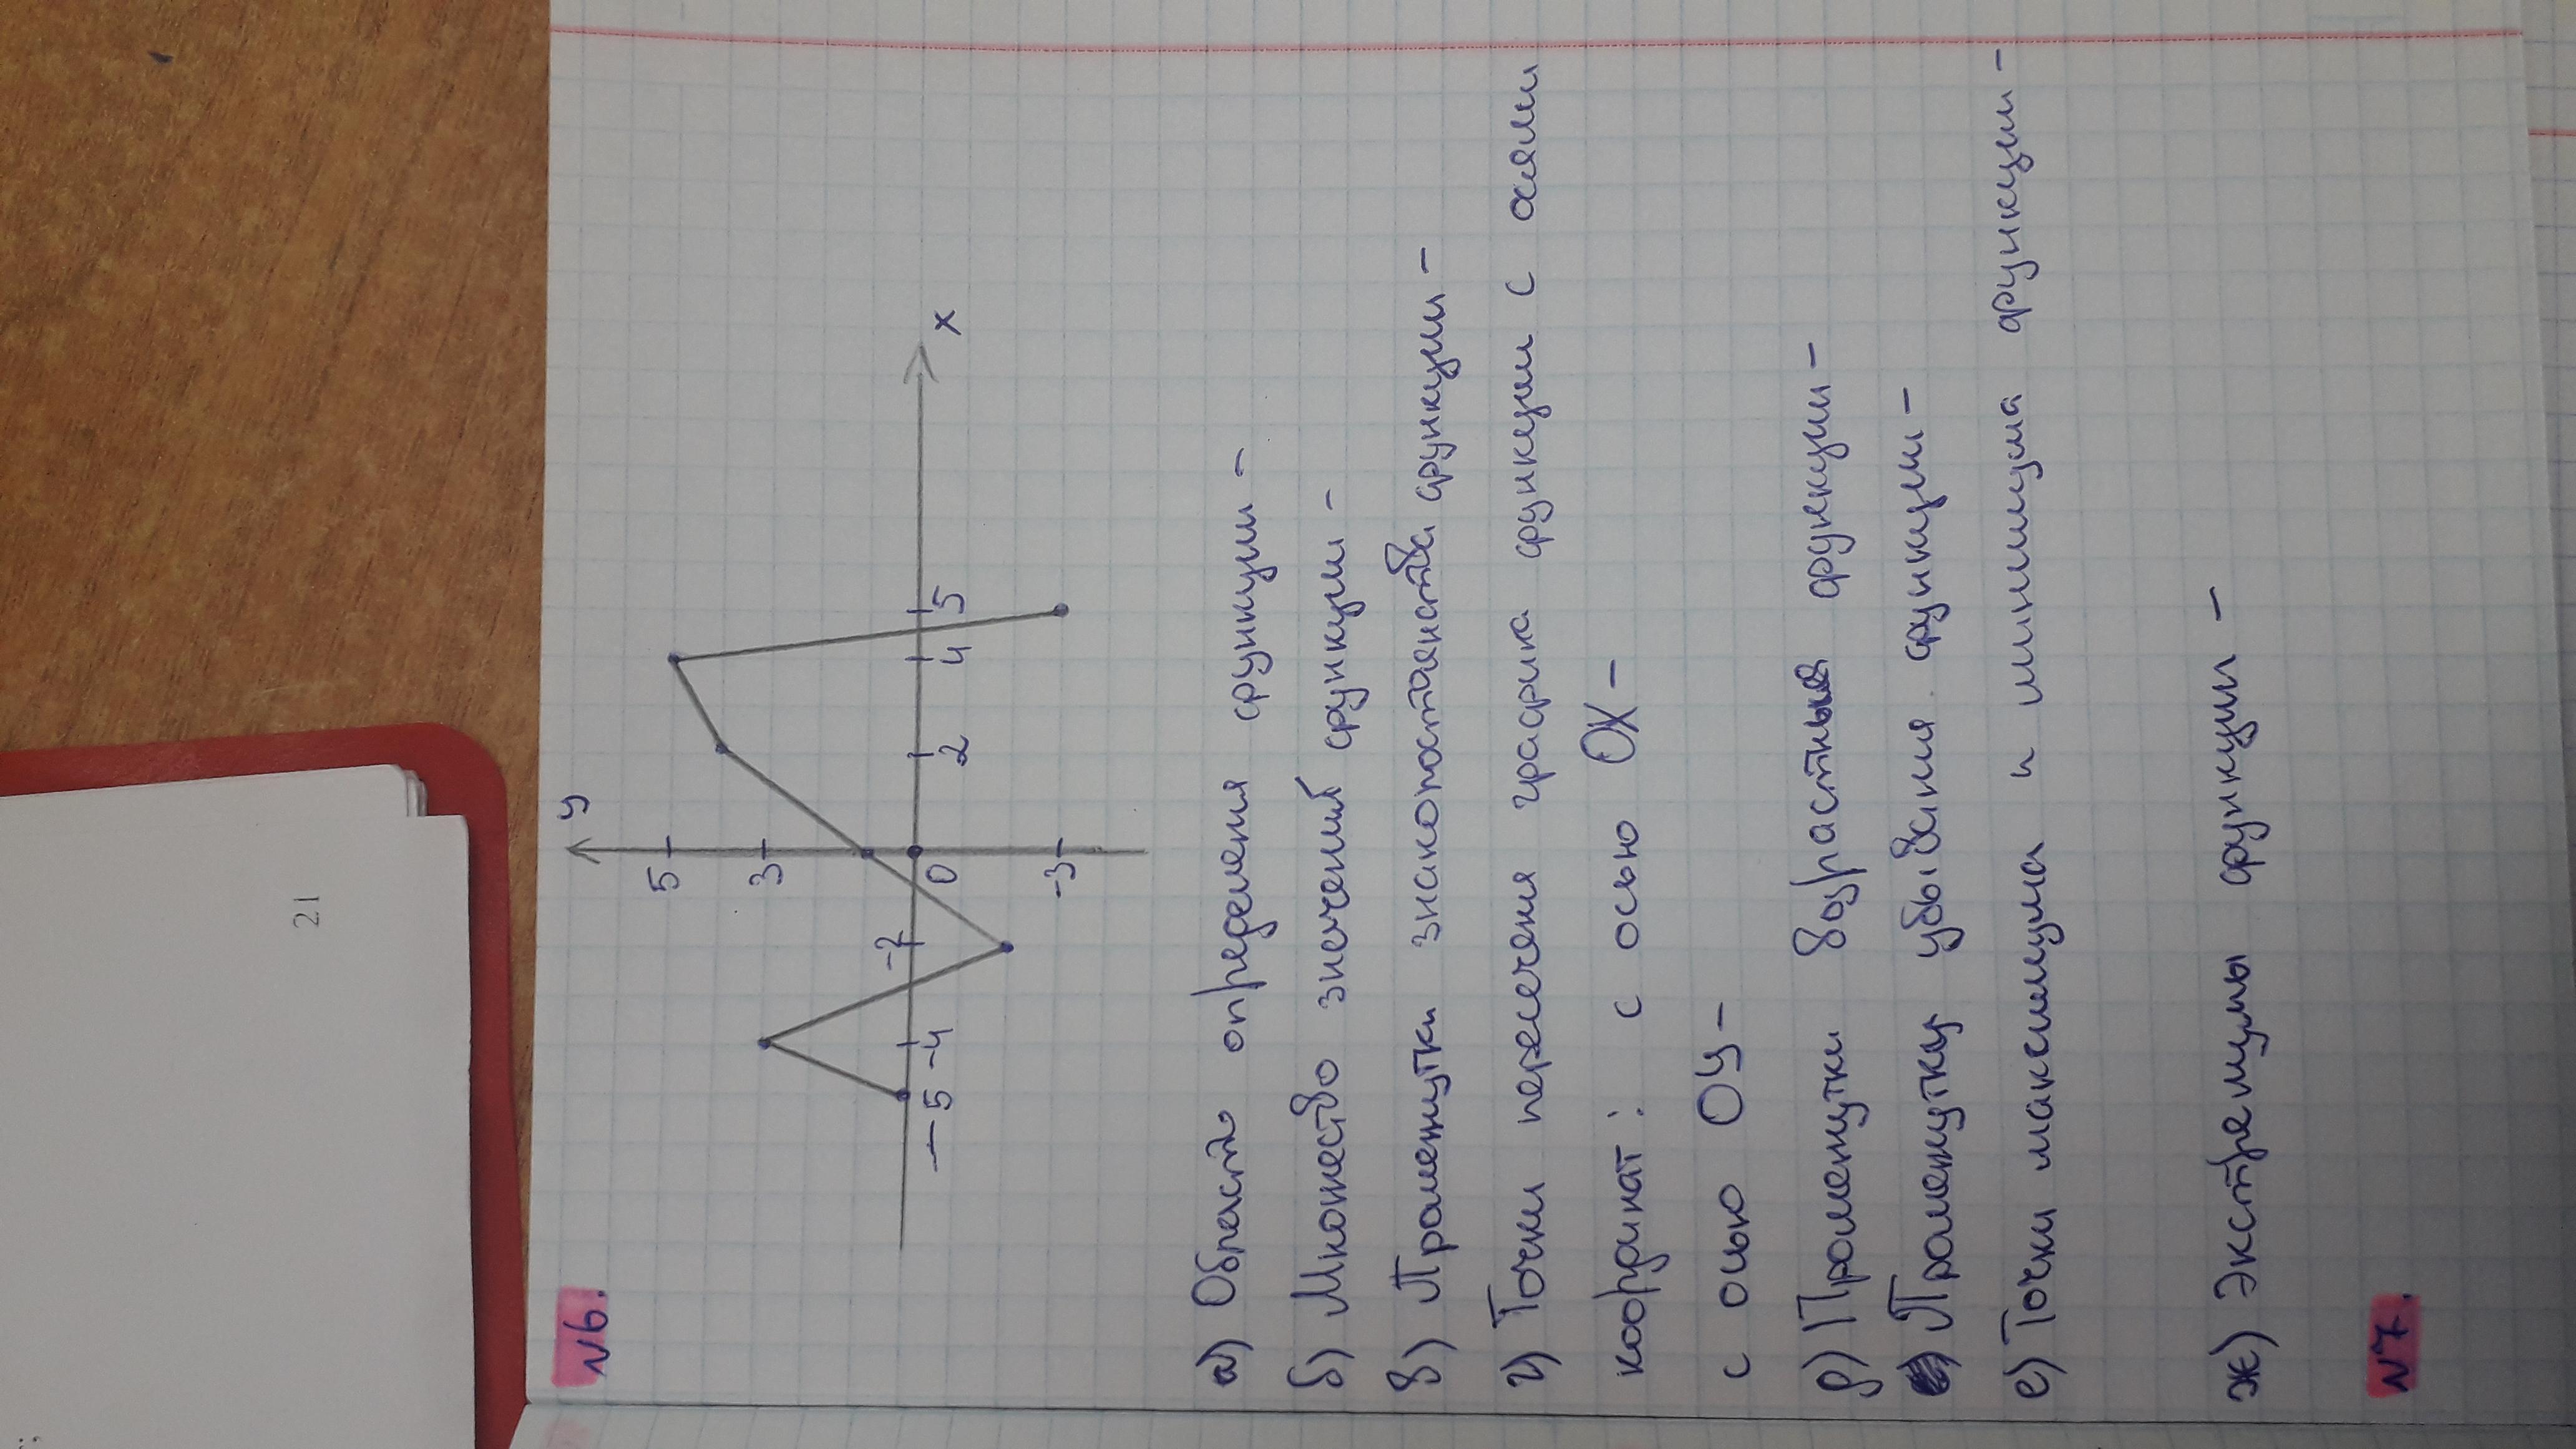 21
N6.
y
5
3
-5 -4 -2 0 2 4 5 x
-3
а) Область определения функции -
б) Множество значений функции -
в) Промежутки знакопостоянства функции -
г) Точки пересечения графика функции с осями
координат: с осью OX -
с осью OY -
д) Промежутки возрастния функции -
Промежутку убывания функции -
е) Точки максимума и минимума функции -
ж) Экстремумы функции -
N7.